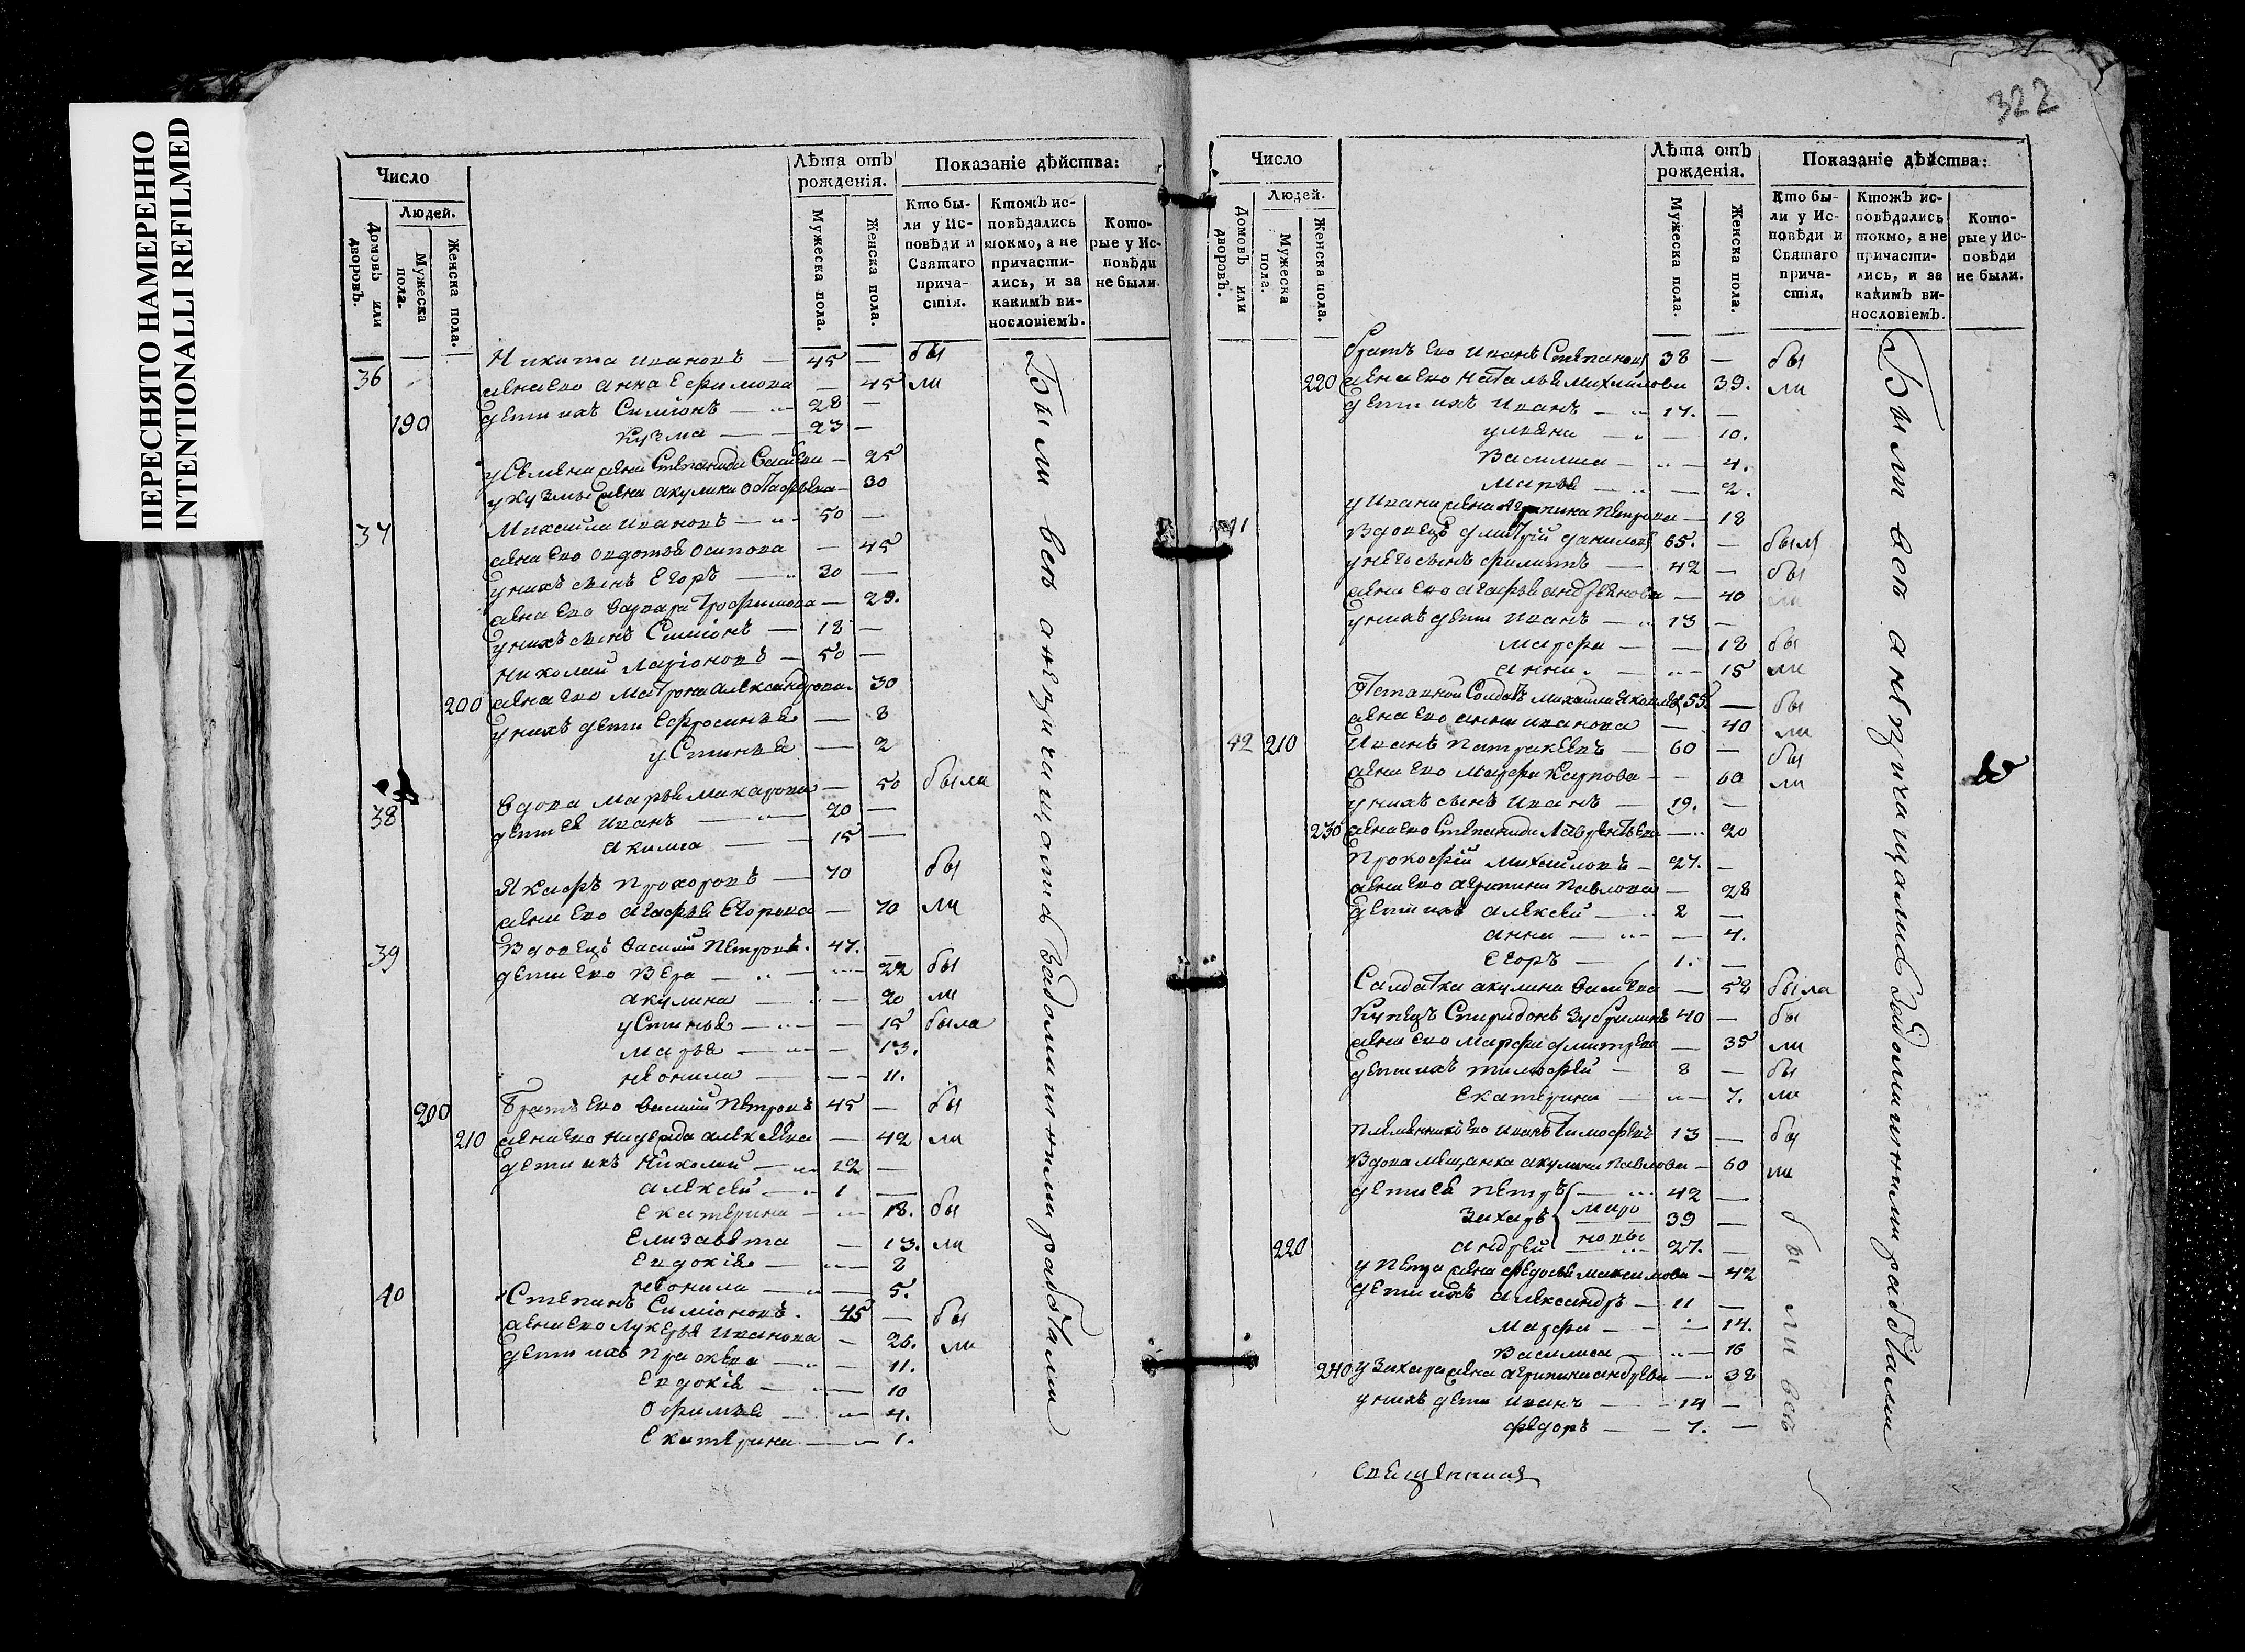 ПЕРЕСНЯТО НАМЕРЕННО
INTENTIONALLI REFILMED
Число
Людей.
Домовъ или дворовъ.
Мужеска пола.
Женска пола.
Лѣта отъ рожденія.
Мужеска пола.
Женска пола.
Показаніе дѣйства:
Кто были у Исповѣди и Святаго причастія.
Ктожъ исповѣдались токмо, а не причастились, и за какимъ винословіемъ.
Которые у Исповѣди не были.
36 Никита Ивановъ — 45 — бы
жена ево Анна Ефимова — 45 ли
190 дети ихъ Симіонъ — 28 —
Кузма — 23 —
у Семена жена Степанида — 25
у Кузмы жена Акулина — 30
37 Михаила Ивановъ — 50 —
жена ево Авдотья Осипова — 45
у нихъ сынъ Егоръ — 30 —
жена ево Варвара Трофимова — 29.
у нихъ сынъ Симіонъ — 18 —
Николай Ларіоновъ — 50 —
200 жена ево Матрона Александрова 30
у нихъ дети Ефросинья — 8
Устинья — 2
38 Вдова Марья Макарова — 50 была
дети ея Иванъ — 20 —
Акима — 15 —
Прохоровъ — 70 бы
жена ево Агафья Егорова — 70 ли
39 Вдовецъ Василій Петровъ. 47. —
дети ево Вера — 22 бы
Акулина — 20 ли
Устинья — 15 была
Марья — 13.
Неонила — 11.
200 Братъ ево Василій Петровъ 45 — бы
210 жена ево Алексеева — 42 ли
дети ихъ Николай — 12 —
Алексей — 1 —
Екатерина — 18. бы
Елизавета — 13. ли
Евдокія — 8
Неонила — 5.
40 Степанъ Симіоновъ. 45 — бы
жена ево Лукерья Иванова — 26. ли
дети ихъ — 11.
Евдокія — 10
Офимья — 4.
Екатерина — 1.
Были всѣ а не причащались за домашними работами
322
Число
Людей.
Домовъ или дворовъ.
Мужеска пола.
Женска пола.
Лѣта отъ рожденія.
Мужеска пола.
Женска пола.
Показаніе дѣйства:
Кто были у Исповѣди и Святаго причастія.
Ктожъ исповѣдались токмо, а не причастились, и за какимъ винословіемъ.
Которые у Исповѣди не были.
братъ ево Иванъ Степановъ 38 — бы
220 жена ево Наталья Михайлова 39. ли
дети ихъ Иванъ — 17. —
Улияна — 10.
Василиса — 4.
Марья — 2.
у Ивана жена Агрипина Петрова — 18
41 Вдовецъ Дмитрій Даниловъ 65. — былъ
у него сынъ Филиппъ — 42 — бы
жена ево Агафья Андреянова — 40 ли
у нихъ дети Иванъ — 13 —
Марфа — 18 бы
Анна. — 15 ли
Отставной Солдатъ Михайла Яковлевъ 55 — бы
жена ево Анна Иванова — 40 ли
42 210 Иванъ Патрикеевъ — 60 — бы
жена ево Марфа Карпова — 60 ли
у нихъ сынъ Иванъ — 19. —
230 жена ево Степанида Лаврентьева — 20
Прокофій Михайловъ — 27. —
жена ево Агрипина Павлова — 28
дети ихъ Алексей — 2 —
Анна — 4.
Егоръ — 1. —
Салдатка Акулина — 58 была
Купецъ Спиридонъ Зубрилинъ 40 — бы
жена ево Марфа Дмитрева — 35 ли
дети ихъ Тимофей — 8 — бы
Екатерина — 7. ли
племенникъ ево Иванъ Тимофеевъ 13 — бы
Вдова мещанка Акулина Павлова — 60 ли
дети ея Петръ — 42 —
Захаръ 39 —
220 Андрей 27. —
у Петра жена Федосья Максимова — 42
дети ихъ Александръ — 11 —
Марфа — 14.
Василиса — 16
240 у Захара жена Агрипина Андреева — 38
у нихъ дети Иванъ — 14 —
Федоръ — 7. —
были всѣ
Были всѣ а не причащались за домашними работами
священникъ